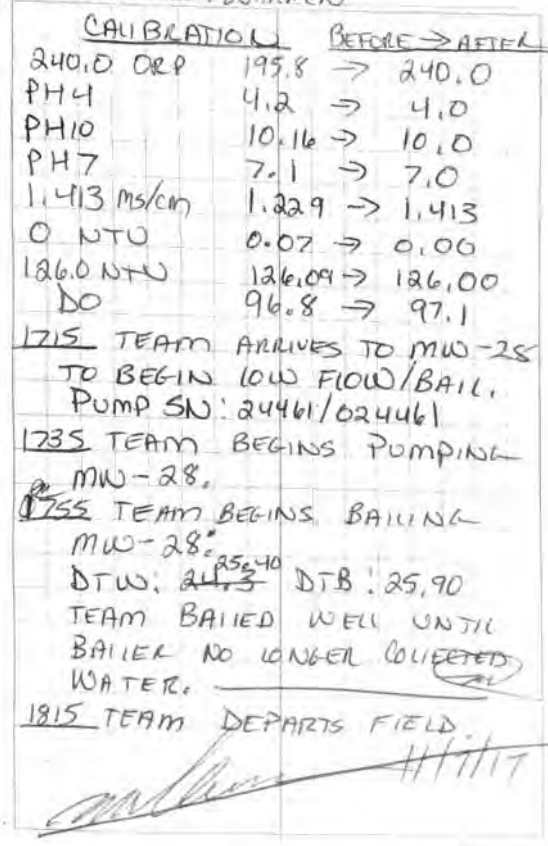 CALIBRATION BEFORE → AFTER
240.0 ORP 195.8 → 240.0
PH4 4.2 → 4.0
PH10 10.16 → 10.0
PH7 7.1 → 7.0
1.413 ms/cm 1.229 → 1.413
0 NTU 0.07 → 0.00
126.0 NTU 126.09 → 126.00
DO 96.8 → 97.1
1715 TEAM ARRIVES TO MW-28
TO BEGIN LOW FLOW/BAIL.
PUMP SN: 24461/024461
1735 TEAM BEGINS PUMPING
MW-28.
1755 TEAM BEGINS BAILING
MW-28:
DTW: 24.3 25.40 DTB: 25.90
TEAM BAILED WELL UNTIL
BAILER NO LONGER COLLECTED
WATER.
1815 TEAM DEPARTS FIELD.
11/7/17